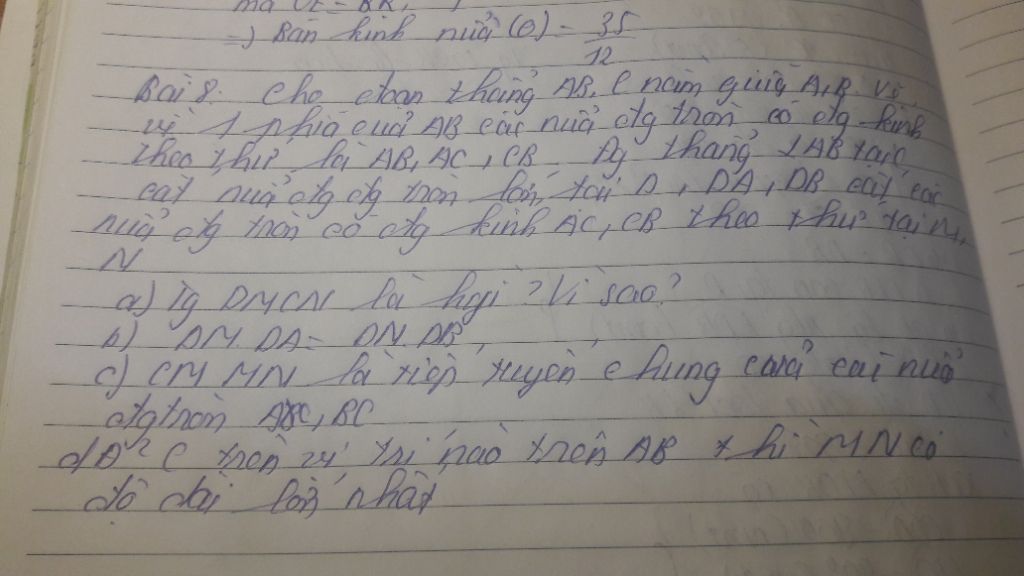 mà OE = BK,
=) Bán kính nửa (O) = 35/12
Bài 8: Cho đoạn thẳng AB, C nằm giữa A, B. Vẽ
về 1 phía của AB các nửa đtg tròn có đtg kính
theo thứ là AB, AC, CB Đg thẳng ⊥AB tại C
cắt nửa đtg đtg tròn lớn tại D, DA, DB cắt các
nửa đtg tròn có đtg kính AC, CB theo thứ tại M,
N
a) Tg DMCN là hgì? Vì sao?
b) DM. DA = DN. DB
c) CM MN là tiếp tuyến chung của cái nửa
đtg tròn AC, BC
d) C trên vị trí nào trên AB thì MN có
độ dài lớn nhất